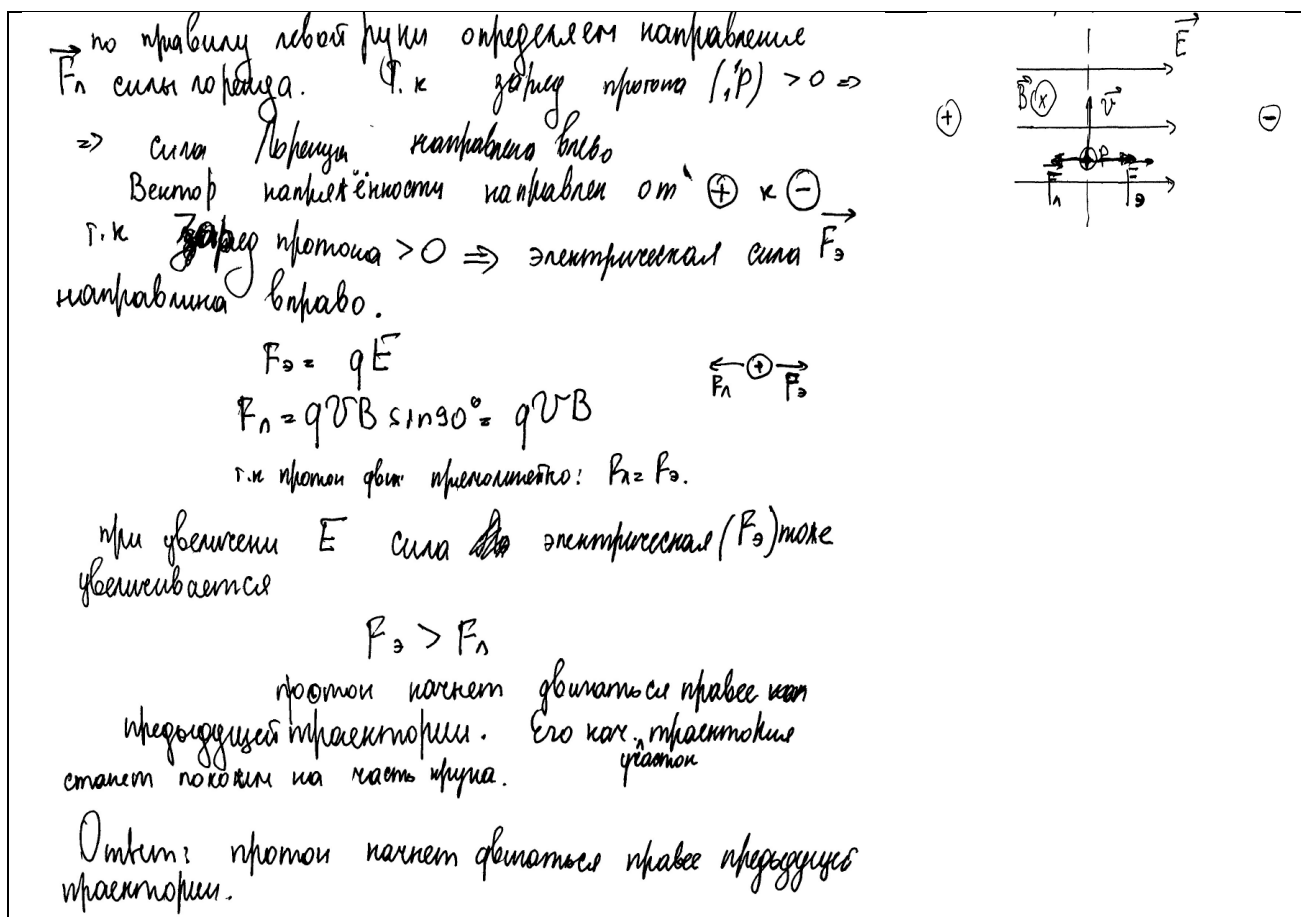 по правилу левой руки определяем направление
F⃗л силы лоренца. Т.к заряд протона (¹₁P) > 0 ⇒
⇒ сила Лоренца направлена влево
Вектор напряжённости направлен от ⊕ к ⊖
т.к заряд протона > 0 ⇒ электрическая сила F⃗э
направлина вправо.
Fэ = qE
Fл = qVB sin90° = qVB
т.к протон движ. : Fл = Fэ.
при увеличени E сила электрическая (Fэ) тоже
увеличивается
Fэ > Fл
протон начнет двигаться правее
предыдущей траектории. Его нач. участок траектория
станет похожим на часть круга.
Ответ: протон начнет двигаться правее предыдущей
траектории.
E⃗
B⃗ (x) v⃗
+ −
P
Fл Fэ
+
Fл Fэ